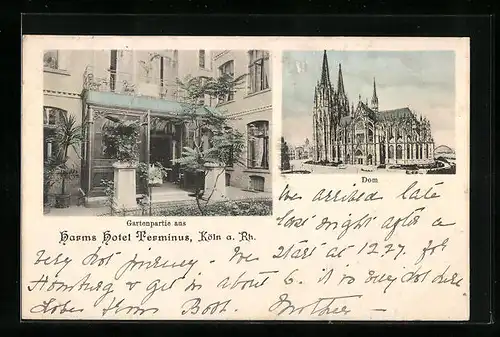 Gartenpartie aus
Dom
Harms Hotel Terminus, Köln a. Rh.
We arrived late
last night after a
very hot journey. We start at 12.27. for
Homburg & get in about 6. it is very hot here
Mother